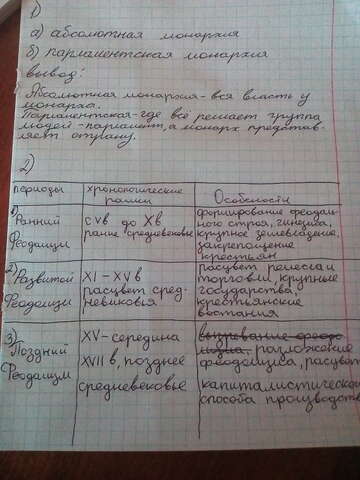 1)
а) абсолютная монархия
б) парламентская монархия
вывод:
Абсолютная монархия - вся власть у
монарха.
Парламентская - где всё решает группа
людей - парламент, а монарх представ-
ляет страну.
2)
периоды хронологические рамки Особености
1) Ранний Феодализм
с V в до X в
ранне средневековье
формирование феодаль-
ного строя,
крупное землевладение,
закрепощение
крестьян
2) Развитой Феодализм
XI - XV в
расцвет сред-
невиковья
расцвет ремесла и
торговли, крупные
государства,
крестьянские
востания
3) Поздний Феодализм
XV - середина
XVII в, позднее
средневековье
разложение
феодолизма, расцвет
капиталистической
способа производств